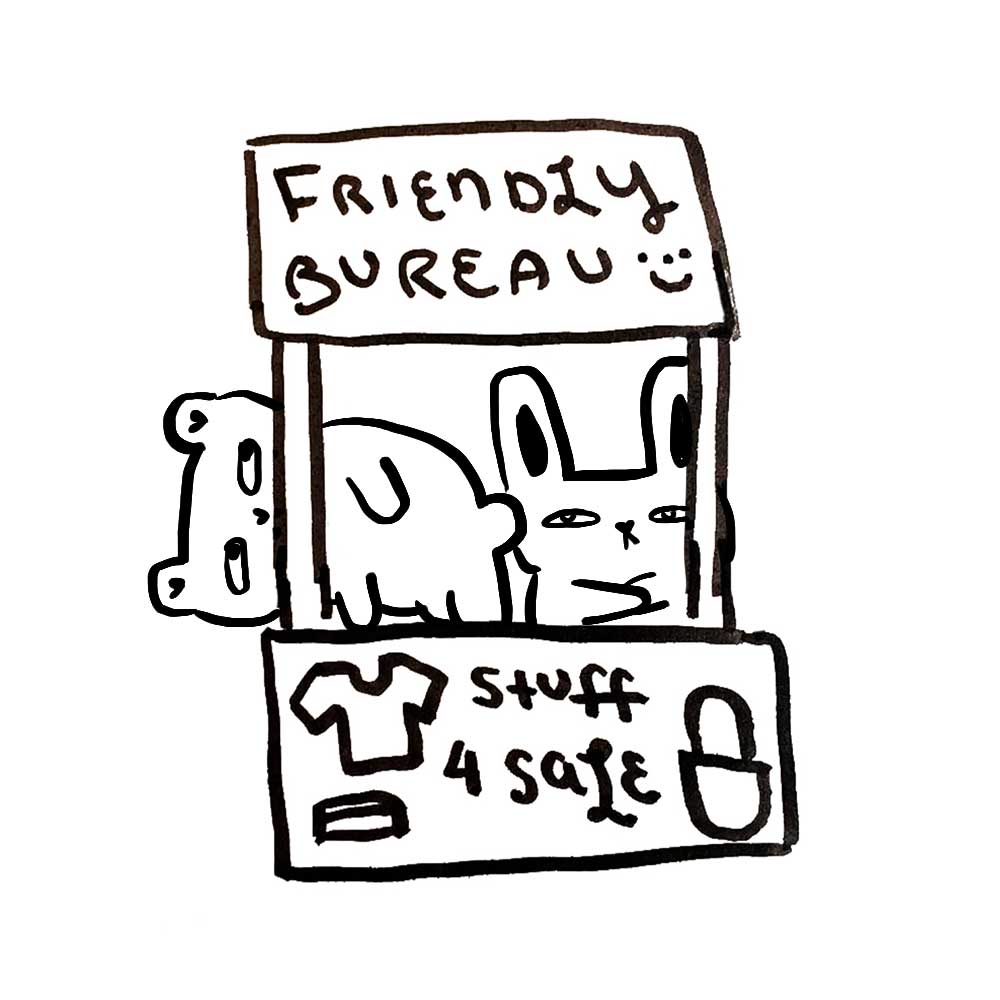 FRIENDLY
BUREAU
stuff
4 sale